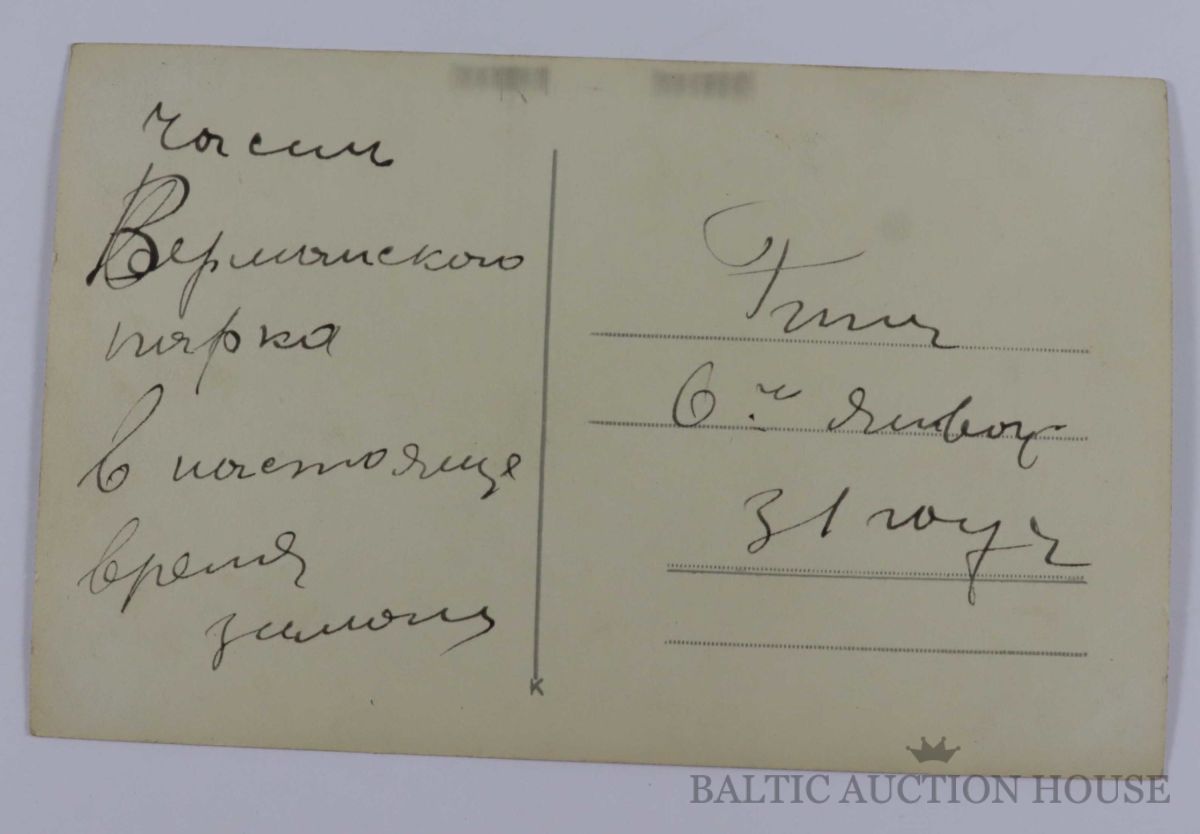 часть
Верманского
парка
в настояще
время
зимою
Рига
6 го январ
31 года
K
BALTIC AUCTION HOUSE